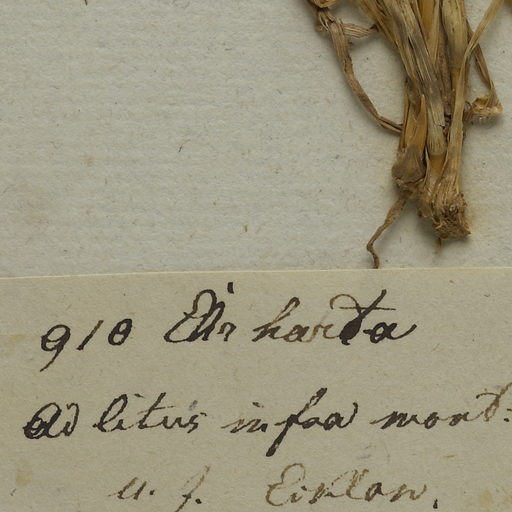 910 Ehrharta
Ad litus infra mont:
U. J. Ecklon.